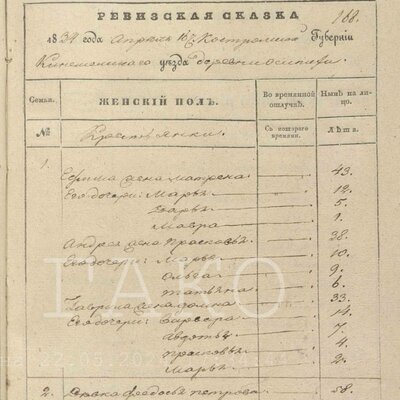 РЕВИЗСКАЯ СКАЗКА
188.
1834 года Апреля Костромской Губерніи
Кинешемскаго уѣзда деревни
Семьи. ЖЕНСКІЙ ПОЛЪ. Во временной отлучкѣ. Нынѣ на лицо.
№ Крестьянки. Съ котораго времени. Лѣта.
1.
жена Матрена 43.
Его дочери: Марья 12.
Дарья 5.
Мавра 1.
Андрея жена Прасковья 38.
Его дочери: Марья 10.
Ольга 9.
Татьяна 6.
Гаврила жена 33.
Его дочери: Варвара 14.
Авдотья 7.
Прасковья 4.
Марья 2.
2. Федосья Петрова 58.
ГАГО